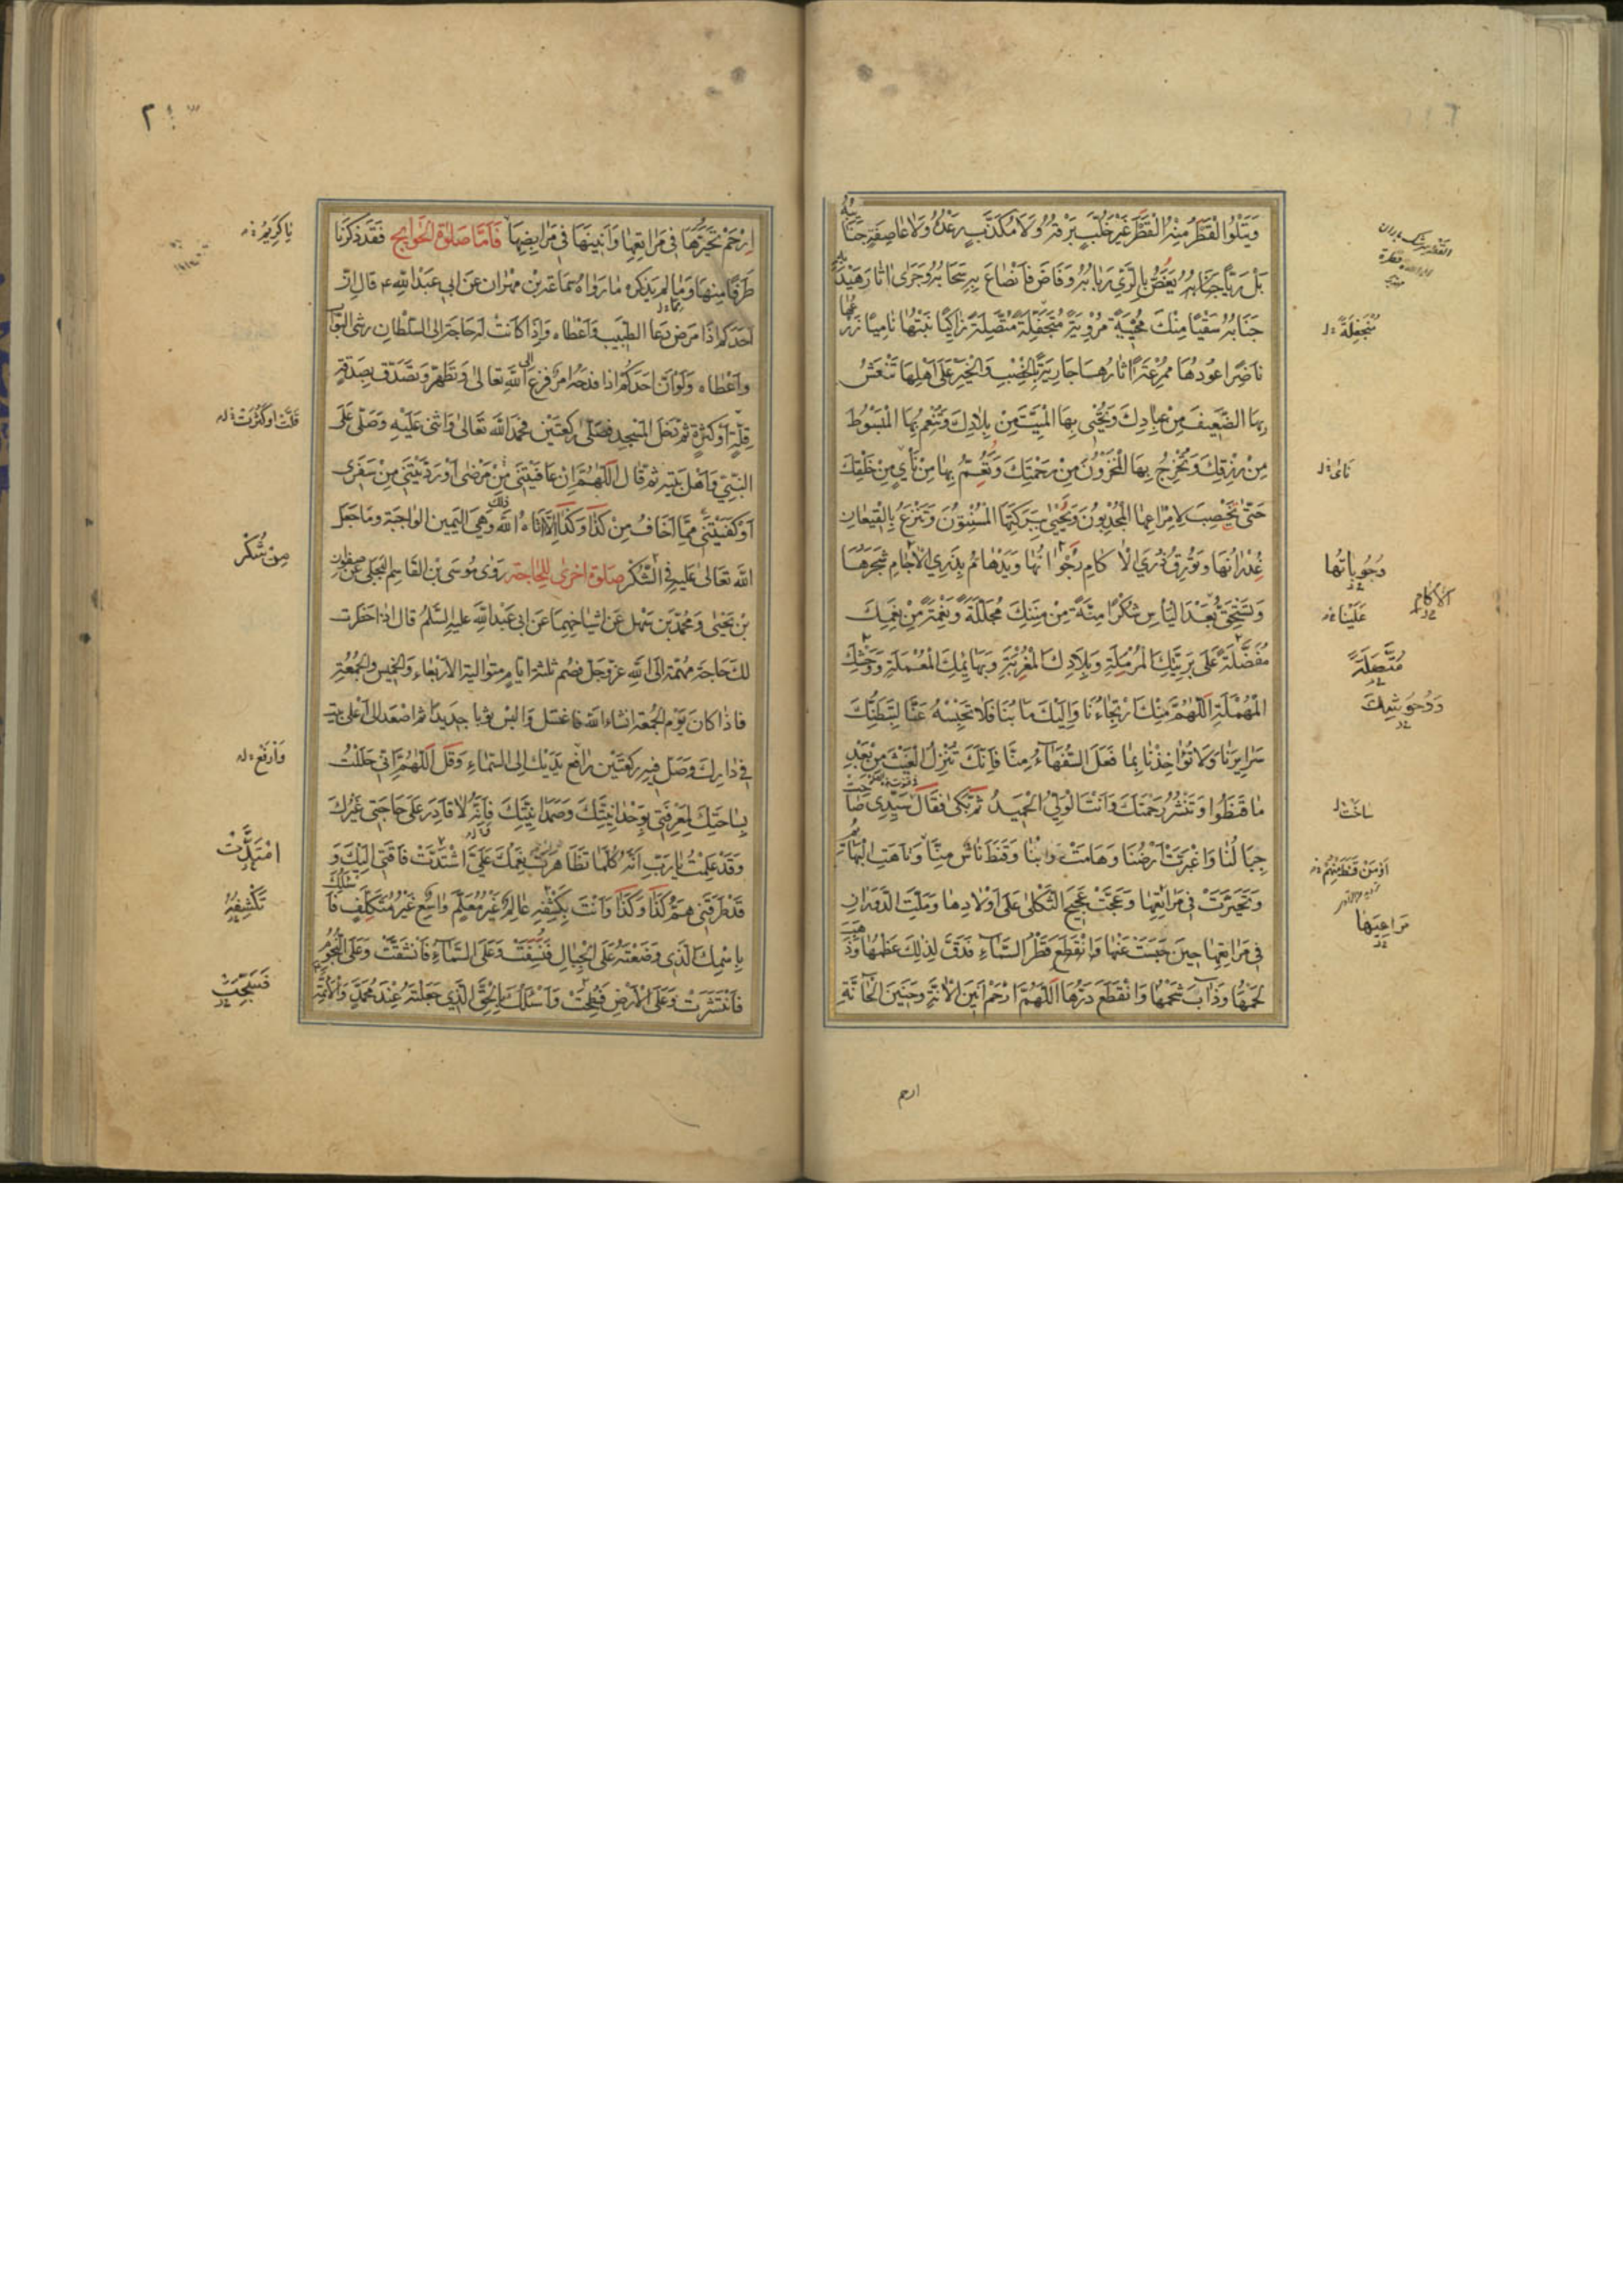 وَيَتْلُوا الْقَطْرُ مِنْهُ الْقَطْرَ غَيْرَ خُلَّبٍ بَرْقُهُ وَلَا مُكَذَّبٍ رَعْدُهُ وَلَا عَاصِفَةٍ جَنَائِبُهُ
بَلْ رَيّاً يَغَصُّ بِالرَّيِّ رَبَابُهُ وَفَاضَ فَانْصَاعَ بِهِ سَحَابُهُ وَجَرَى اثَارُ هَيْدَبِهِ
جَنَابَهُ سَقْيًا مِنْكَ مُحْيِيَةً مُرْوِيَةً مُتَّصِلَةً زَاكِيًا نَبْتُهَا نَامِيًا زَرْعُهَا
نَاضِرًا عُودُهَا مُمْرِعَةً اثَارُهَا جَارِيَةً بِالْخِصْبِ وَالْخَيْرِ عَلَى أَهْلِهَا تَنْعَشُ
بِهَا الضَّعِيفَ مِنْ عِبَادِكَ وَتُحْيِي بِهَا الْمَيِّتَ مِنْ بِلَادِكَ وَتُنْعِمُ بِهَا الْمَبْسُوطَ
مِنْ رِزْقِكَ وَتُخْرِجُ بِهَا الْمَخْزُونَ مِنْ رَحْمَتِكَ وَتَعُمُّ بِهَا مِنْ نَأَي مِنْ خَلْقِكَ
حَتَّى يُخْصِبَ لِإِمْرَاعِهَا الْمُجْدِبُونَ وَيَحْيَى بِبَرَكَتِهَا الْمُسْنِتُونَ وَتُتْرَعُ بِالْقِيعَانِ
غُدْرَانُهَا وَتُورِقُ ذُرَي الْأَكَامِ رَجَوَاتُهَا وَيَدْهَامَّ بِذُرَي الْآجَامِ شَجَرُهَا
وَتَسْتَحِقُّ بَعْدَ الْيَأْسِ شُكْرًا مِنَّةً مِنْ مِنَنِكَ مُجَلِّلَةً وَنِعْمَةً مِنْ نِعَمِكَ
مُفَضَّلَةً عَلَى بَرِيَّتِكَ الْمُرْمِلَةِ وَبِلَادِكَ الْمُغْرِبَةِ وَبَهَائِمِكَ الْمُعْمَلَةِ وَوَحْشِكَ
الْمُهْمَلَةِ اللَّهُمَّ مِنْكَ ارْتِجَاءُنَا وَإِلَيْكَ مَآبُنَا فَلَا تَحْبِسْهُ عَنَّا لِتَبَطُّنِكَ
سَرَايِرَنَا وَلَا تُؤَاخِذْنَا بِمَا فَعَلَ السُّفَهَاءُ مِنَّا فَإِنَّكَ تُنْزِلُ الْغَيْثَ مِنْ بَعْدِ
مَا قَنَطُوا وَتَنْشُرُ رَحْمَتَكَ وَأَنْتَ الْوَلِيُّ الْحَمِيدُ ثُمَّ بَكَى فَقَالَ سَيِّدِي صَاحَتْ
جِبَالُنَا وَاغْبَرَّتْ أَرْضُنَا وَهَامَتْ دَوَابُّنَا وَقَنَطَ نَاسٌ مِنَّا وَتَاهَتِ الْبَهَائِمُ
وَتَحَيَّرَتْ فِي مَرَاتِعِهَا وَعَجَّتْ عَجِيجَ الثَّكْلَى عَلَى أَوْلَادِهَا وَمَلَّتِ الدَّوَرَانَ
فِي مَرَاتِعِهَا حِينَ حَبَسْتَ عَنْهَا وَانْقَطَعَ قَطْرُ السَّمَاءِ فَدَقَّ لِذَلِكَ عَظْمُهَا وَذَهَبَ
لَحْمُهَا وَذَابَ شَحْمُهَا وَانْقَطَعَ دَرُّهَا اللَّهُمَّ ارْحَمْ أَنِينَ الْآنَّةِ وَحَنِينَ الْحَانَّةِ
مُنْجَفِلَةً
نَائ
عَلَيْنَا
مُتَّصِلَةً
وَوُحُوشِكَ
سَاخَتْ
أَوْ مَنْ قَنَطَ مِنْهُمْ
مَرَاعِيهَا
ارحم
اِرْحَمْ تَحَيُّرَهَا فِي مَرَاتِعِهَا وَأَنِينَهَا فِي مَرَابِضِهَا فَأَمَّا صَلَوةُ الْحَوَايِجِ فَقَدْ ذَكَرْنَا
طَرَفًا مِنْهَا وَمِمَّا لَمْ يَذْكُرْهُ مَا رَوَاهُ سَمَاعَةُ بْنُ مِهْرَانَ عَنْ أَبِي عَبْدِ اللَّهِ ع قَالَ إِنَّ
أَحَدَكُمْ إِذَا مَرِضَ دَعَا الطَّبِيبَ وَأَعْطَاهُ وَإِذَا كَانَتْ لَهُ حَاجَةٌ إِلَى السُّلْطَانِ رَشَى الْبَوَّابَ
وَأَعْطَاهُ وَلَوْ أَنَّ أَحَدَكُمْ إِذَا فَدَحَهُ أَمْرٌ فَزِعَ إِلَى اللَّهِ تَعَالَى وَتَطَهَّرَ وَتَصَدَّقَ بِصَدَقَةٍ
قَلَّتْ أَوْ كَثُرَتْ ثُمَّ دَخَلَ الْمَسْجِدَ فَصَلَّى رَكْعَتَيْنِ فَحَمِدَ اللَّهَ تَعَالَى وَأَثْنَى عَلَيْهِ وَصَلَّى عَلَى
النَّبِيِّ وَأَهْلِ بَيْتِهِ ثُمَّ قَالَ اللَّهُمَّ إِنْ عَافَيْتَنِي مِنْ مَرَضِي أَوْ رَدَدْتَنِي مِنْ سَفَرِي
أَوْ كَفَيْتَنِي مِمَّا أَخَافُ مِنْ كَذَا وَكَذَا إِلَّا أَتَاهُ اللَّهُ ذَلِكَ وَهِيَ الْيَمِينُ الْوَاجِبَةُ وَمَا جَعَلَ
اللَّهُ تَعَالَى عَلَيْهِ فِي الشُّكْرِ صَلَوةٌ أُخْرَى لِلْحَاجَةِ رَوَى مُوسَى بْنُ الْقَاسِمِ الْبَجَلِيُّ عَنْ صَفْوَانَ
بْنِ يَحْيَى وَمُحَمَّدِ بْنِ سَهْلٍ عَنْ أَشْيَاخِهِمَا عَنْ أَبِي عَبْدِ اللَّهِ عَلَيْهِ السَّلَمُ قَالَ إِذَا حَضَرَتْ
لَكَ حَاجَةٌ مُهِمَّةٌ إِلَى اللَّهِ عَزَّ وَجَلَّ فَصُمْ ثَلَثَةَ أَيَّامٍ مُتَوَالِيَةٍ الْأَرْبَعَاءَ وَالْخَمِيسَ وَالْجُمُعَةَ
فَإِذَا كَانَ يَوْمُ الْجُمُعَةِ انْشَاءَ اللَّهُ فَاغْتَسِلْ وَالْبَسْ ثَوْبًا جَدِيدًا ثُمَّ اصْعَدْ إِلَى أَعْلَى بَيْتٍ
فِي دَارِكَ وَصَلِّ فِيهِ رَكْعَتَيْنِ رَافِعْ يَدَيْكَ إِلَى السَّمَاءِ وَقُلْ اللَّهُمَّ إِنِّي حَلَلْتُ
بِسَاحَتِكَ لِمَعْرِفَتِي بِوَحْدَانِيَّتِكَ وَصَمَدَانِيَّتِكَ فَإِنَّهُ لَا قَادِرَ عَلَى حَاجَتِي غَيْرُكَ
وَقَدْ عَلِمْتُ يَا رَبِّ أَنَّهُ كُلَّمَا تَظَاهَرَتْ نِعَمُكَ عَلَيَّ اشْتَدَّتْ فَاقَتِي إِلَيْكَ وَ
قَدْ طَرَقَنِي هَمُّ كَذَا وَكَذَا وَأَنْتَ بِكَشْفِهِ عَالِمٌ غَيْرُ مُعَلَّمٍ وَاسِعٌ غَيْرُ مُتَكَلِّفٍ فَأَسْئَلُكَ
بِاسْمِكَ الَّذِي وَضَعْتَهُ عَلَى الْجِبَالِ فَنُسِفَتْ وَعَلَى السَّمَاءِ فَانْشَقَّتْ وَعَلَى النُّجُومِ
فَانْتَشَرَتْ وَعَلَى الْأَرْضِ فَسُطِحَتْ وَأَسْئَلُكَ بِالْحَقِّ الَّذِي جَعَلْتَهُ عِنْدَ مُحَمَّدٍ وَالْأَئِمَّةِ
يَا كَرِيمُ
قَلَّتْ أَوْ كَثُرَتْ
مِنْ شُكْرِ
وَارْفَعْ
امْتَدَّتْ
تَكْشِفُهُ
فَسُجِّيَتْ